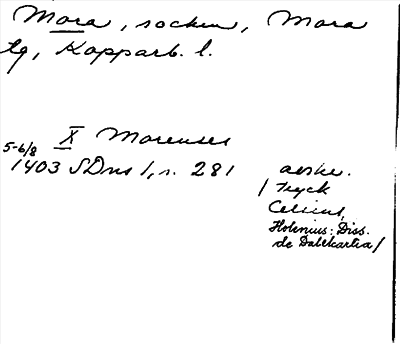 Mora, socken, Mora
tg, Kopparb. l.
X Morenses
5-6/8
1403 SDns 1, s. 281 avskr.
/ Tryck
Celsius,
Holenius: Diss.
de Dalekarlia /